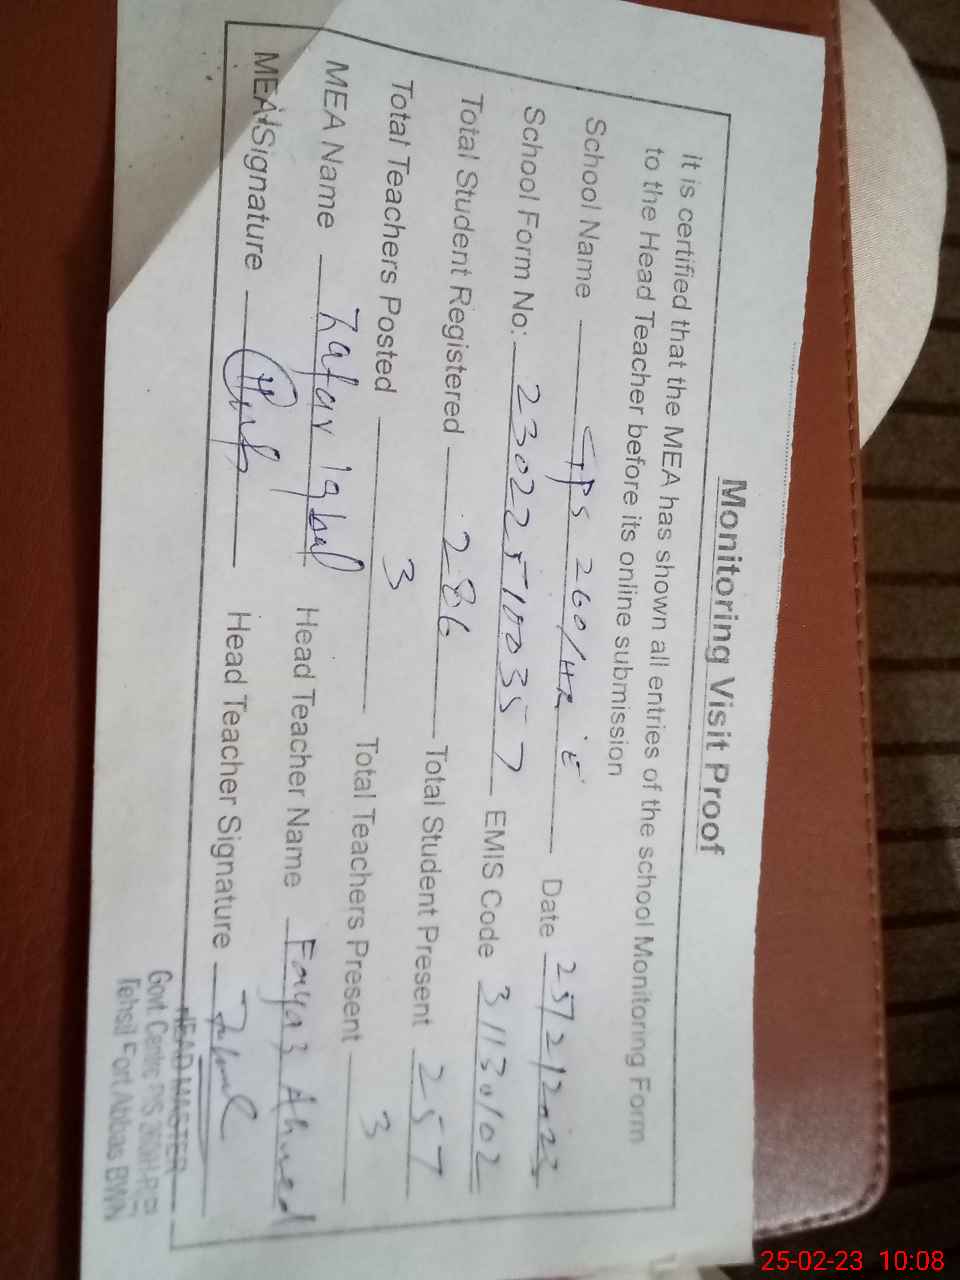 Monitoring Visit Proof
It is certified that the MEA has shown all entries of the school Monitoring Form
to the Head Teacher before its online submission
School Name GPS 260/HR 'E' Date 25/2/2023
School Form No: 2302251100357 EMIS Code 31130102
Total Student Registered 286 Total Student Present 257
Total Teachers Posted 3 Total Teachers Present 3
MEA Name Zafar Iqbal Head Teacher Name Fayaz Ahmed
MEA Signature Head Teacher Signature
HEAD MASTER
Govt. Centre P/S 260/H-R(E)
Tehsil Fort Abbas BWN
25-02-23 10:08